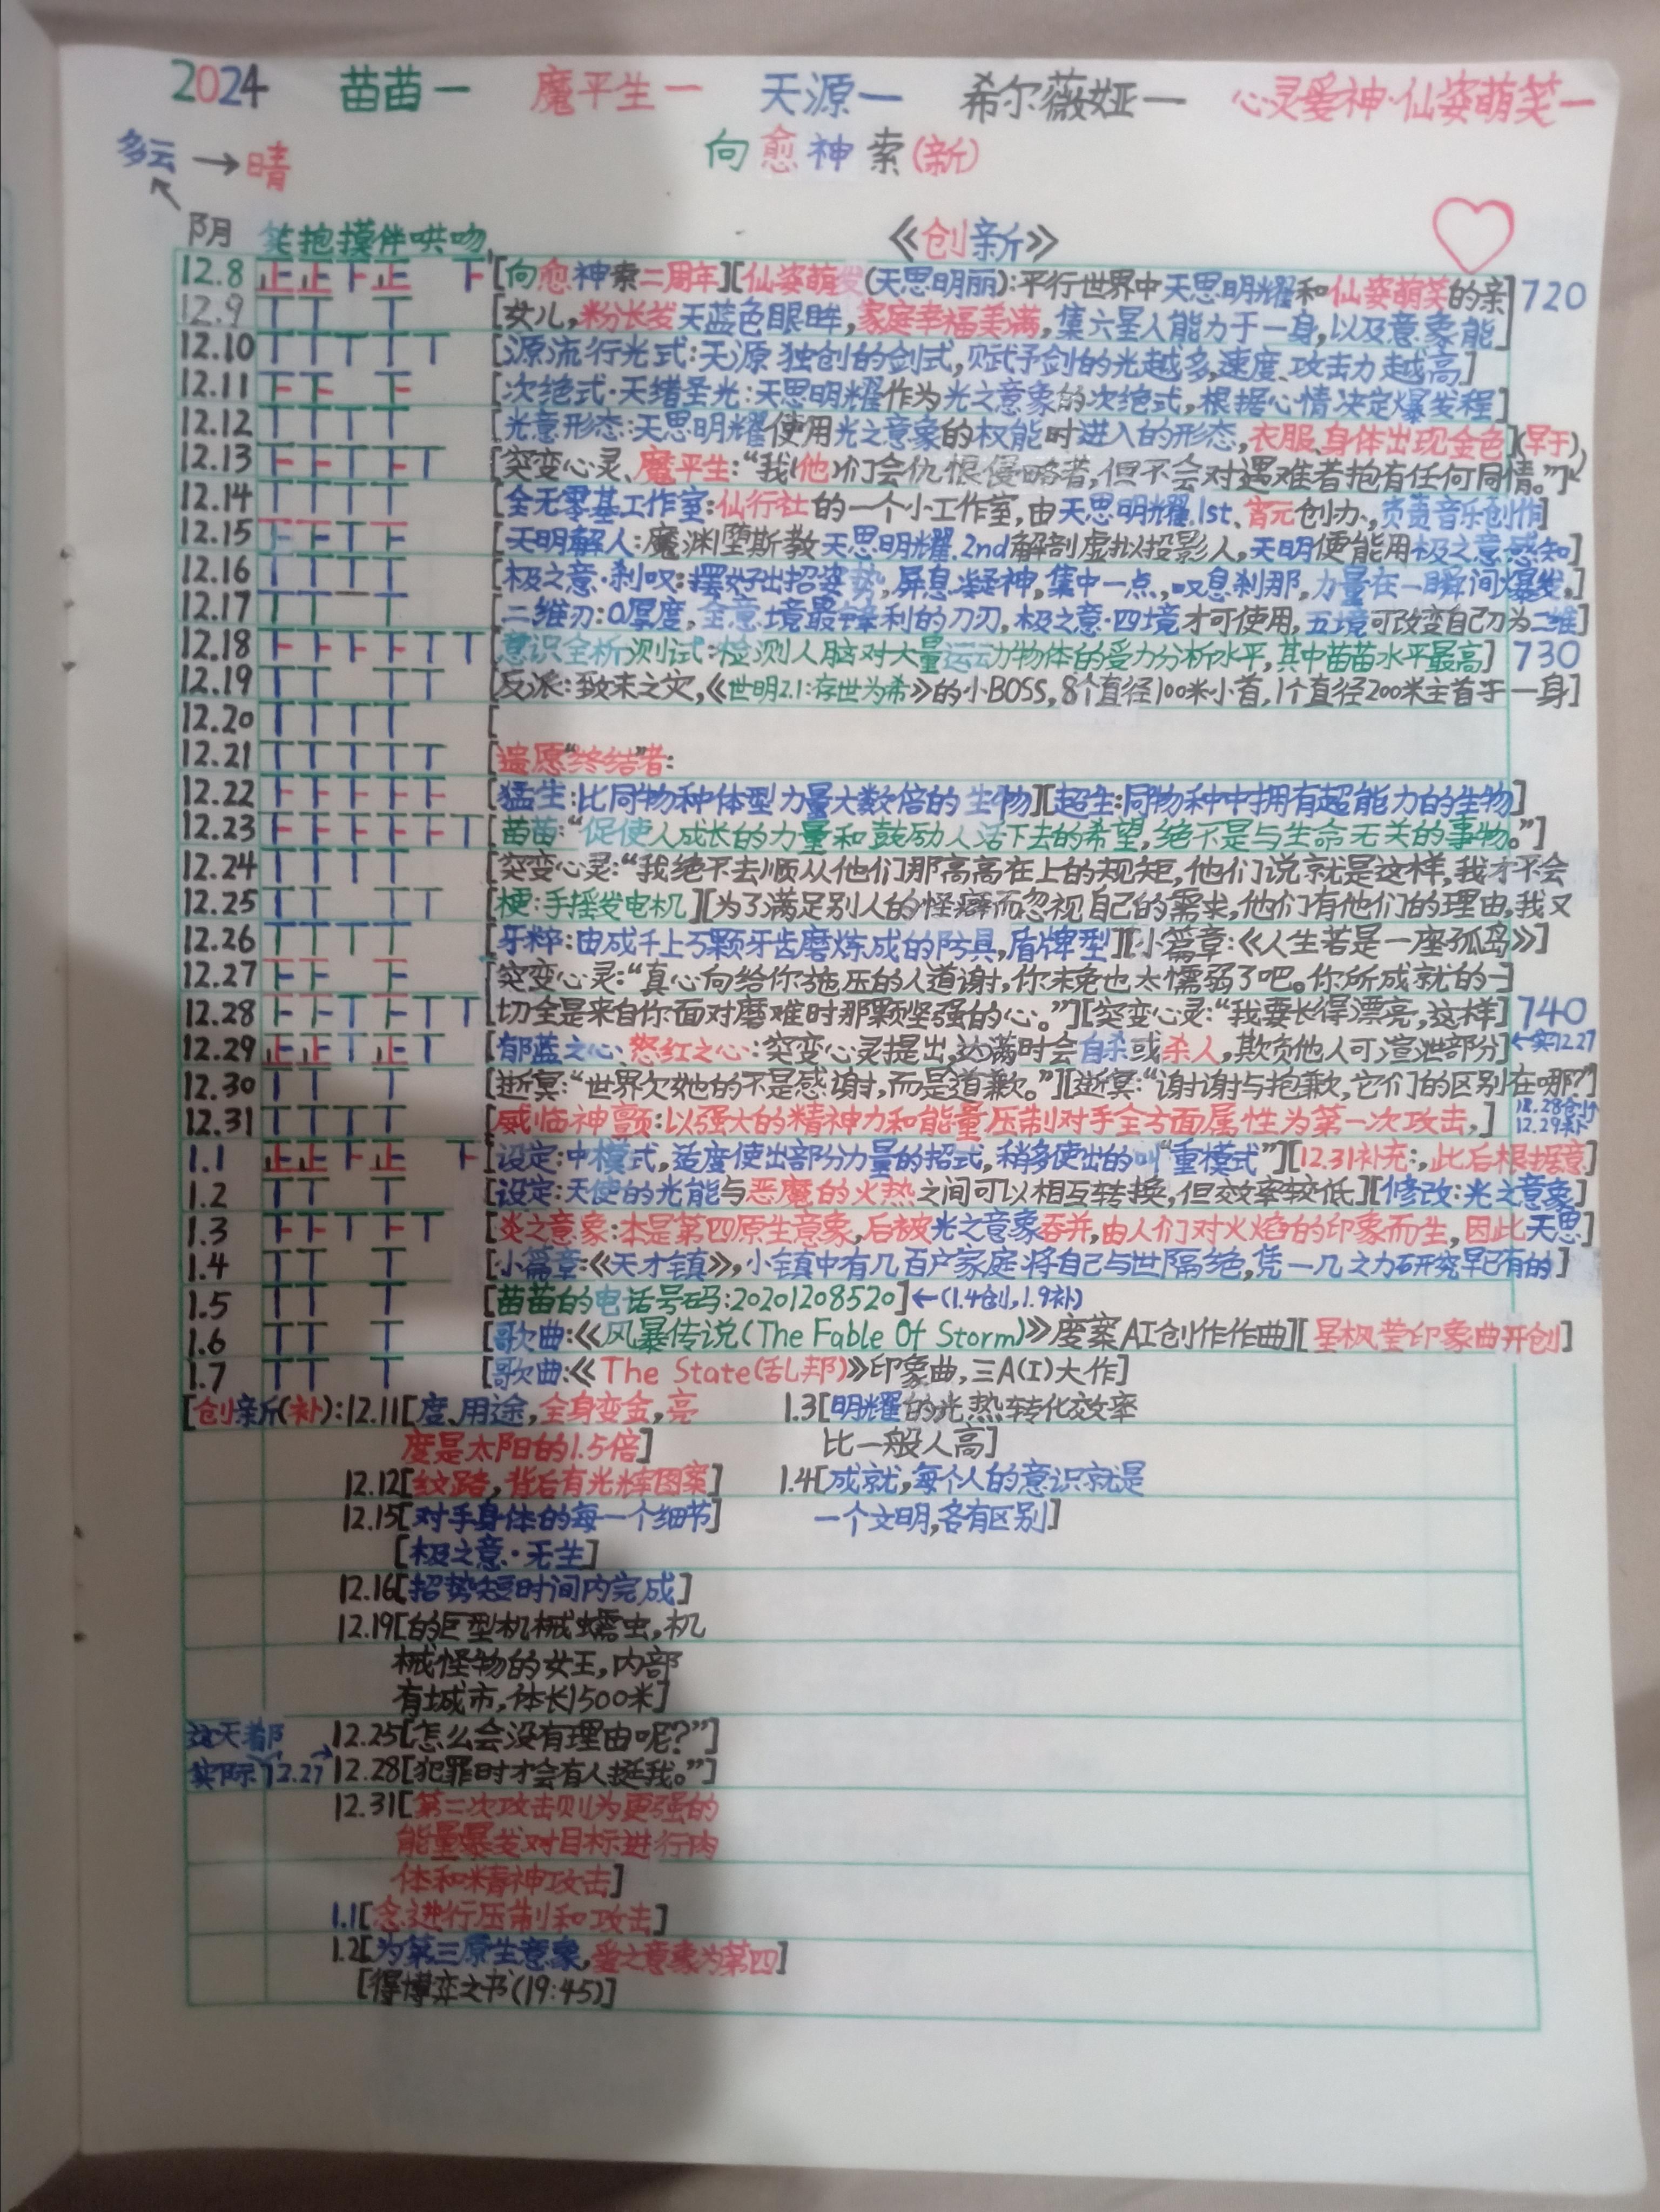 2024 苗苗一 魔平生一 天源一 希尔薇娅一 心灵爱神·仙姿萌笑一
多云→晴 向愈神索(新)
阴 笑抱摸伴哄吻 《创新》
12.8 正正下正 下[向愈神索二周年][仙姿萌发(天思明丽):平行世界中天思明耀和仙姿萌笑的亲 720
12.9 丁丁 丁 [女儿,粉长发天蓝色眼眸,家庭幸福美满,集六星人能力于一身,以及意象能]
12.10 丁丁丁丁丁 [源流行光式:天源独创的剑式,赋予剑的光越多,速度、攻击力越高]
12.11 下下 下 [次绝式·天绪圣光:天思明耀作为光之意象的次绝式,根据心情决定爆发程]
12.12 丁丁丁丁 [光意形态:天思明耀使用光之意象的权能时进入的形态,衣服、身体出现金色](早于)
12.13 下下丁下丁 [突变心灵、魔平生:“我(他)们会仇恨侵略者,但不会对遇难者抱有任何同情。”]
12.14 丁丁丁丁 [全无零基工作室:仙行社的一个小工作室,由天思明耀.1st、宵元创办,负责音乐创作]
12.15 下下丁下 [天明解人:魔渊堕斯教天思明耀.2nd解剖虚拟投影人,天明便能用极之意感知]
12.16 丁丁丁丁 [极之意·刹叹:摆好出招姿势,屏息凝神,集中一点,叹息刹那,力量在一瞬间爆发,]
12.17 丁丁一丁 [二维刃:0厚度,全意境最锋利的刀刃,极之意·四境才可使用,五境可改变自己刀为二维]
12.18 下下下下丁丁 [意识全析测试:检测人脑对大量运动物体的受力分析水平,其中苗苗水平最高] 730
12.19 丁丁 丁丁 [反派:致末之灾,《世明2.1:存世为希》的小BOSS,8个直径100米小首,1个直径200米主首于一身]
12.20 丁丁丁丁 [
12.21 丁丁丁丁丁 [遗愿“终结”者:
12.22 下下下下下 [猛生:比同物种体型力量大数倍的生物][超生:同物种中拥有超能力的生物]
12.23 下下下下下丁 [苗苗:“促使人成长的力量和鼓励人活下去的希望,绝不是与生命无关的事物。”]
12.24 丁丁丁丁 [突变心灵:“我绝不去顺从他们那高高在上的规矩,他们说就是这样,我才不会
12.25 丁丁 丁丁 [梗:手摇发电机][为了满足别人的怪癖而忽视自己的需求,他们有他们的理由,我又
12.26 丁丁丁丁 [牙粹:由成千上万颗牙齿磨炼成的防具,盾牌型][小篇章:《人生若是一座孤岛》]
12.27 下下 下 [突变心灵:“真心向给你施压的人道谢,你未免也太懦弱了吧。你所成就的一]
12.28 下下丁下丁丁 [切全是来自你面对磨难时那颗坚强的心。”][突变心灵:“我要长得漂亮,这样] 740
12.29 正正丁正丁 [郁蓝之心、怒红之心:突变心灵提出,达满时会自杀或杀人,欺负他人可渲泄部分] ←实12.27
12.30 丁丁 丁 [逝冥:“世界欠她的不是感谢,而是道歉。”][逝冥:“谢谢与抱歉,它们的区别在哪?”]
12.31 丁丁丁丁 [威临神颤:以强大的精神力和能量压制对手全方面属性为第一次攻击,] 12.28创 12.29补
1.1 正正下正 下[设定:中模式,适度使出部分力量的招式,稍多使出的叫“重模式”][12.31补充:,此后根据意]
1.2 丁丁 丁 [设定:天使的光能与恶魔的火热之间可以相互转换,但效率较低][修改:光之意象]
1.3 下下丁下丁 [炎之意象:本是第四原生意象,后被光之意象吞并,由人们对火焰的印象而生,因此天思]
1.4 丁丁 丁 [小篇章:《天才镇》,小镇中有几百户家庭将自己与世隔绝,凭一几之力研究早已有的]
1.5 丁丁 丁 [苗苗的电话号码:20201208520]←(1.4创,1.9补)
1.6 丁丁 丁 [歌曲:《风暴传说(The Fable Of Storm)》废案AI创作作曲][星枫莹印象曲开创]
1.7 丁丁 丁 [歌曲:《The State(乱邦)》印象曲,三A(I)大作]
[创新(补):12.11[度、用途,全身变金,亮 1.3[明耀的光热转化效率
度是太阳的1.5倍] 比一般人高]
12.12[纹路,背后有光辉图案] 1.4[成就,每个人的意识就是
12.15[对手身体的每一个细节] 一个文明,各有区别]
[极之意·无生]
12.16[招势短时间内完成]
12.19[的巨型机械蠕虫,机
械怪物的女王,内部
有城市,体长1500米]
这天着阝 12.25[怎么会没有理由呢?”]
实际12.27 12.28[犯罪时才会有人挺我。”]
12.31[第二次攻击则为更强的
能量暴发对目标进行肉
体和精神攻击]
1.1[念进行压制和攻击]
1.2[为第三原生意象,爱之意象为第四]
[得博弈之书(19:45)]